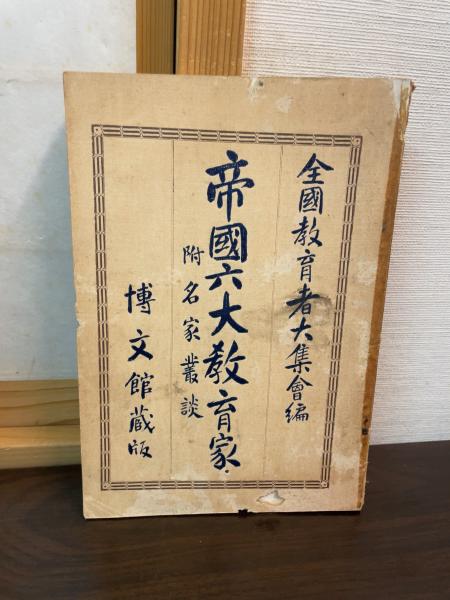 全國教育者大集會編
帝國六大教育家
附名家叢談
博文館蔵版